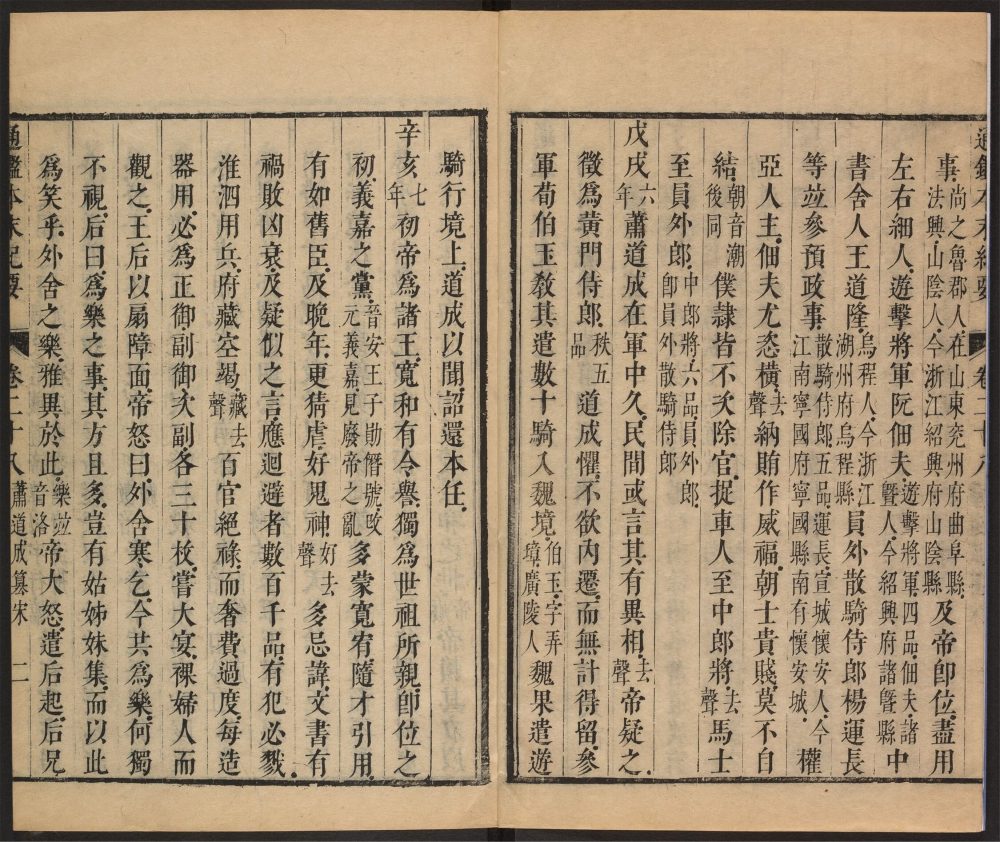 通鑑本末紀要 卷二十八
事尚之魯郡人在山東兖州府曲阜縣法興山陰人今浙江紹興府山陰縣及帝卽位盡用
左右細人遊擊將軍阮佃夫遊擊將軍四品佃夫諸曁人今紹興府諸曁縣中
書舍人王道隆烏程人今浙江湖州府烏程縣員外散騎侍郎楊運長
等竝參預政事散騎侍郎五品運長宣城懷安人今江南寧國府寧國縣南有懷安城權
亞人主佃夫尤恣橫去聲納賄作威福朝士貴賤莫不自
結朝音潮後同僕隷皆不次除官捉車人至中郎將去聲馬士
至員外郎中郎將六品員外郎卽員外散騎侍郎
戊戌六年蕭道成在軍中久民間或言其有異相去聲帝疑之
徵爲黃門侍郎秩五品道成懼不欲內遷而無計得留參
軍荀伯玉敎其遣數十騎入魏境伯玉字弄璋廣陵人魏果遣遊
騎行境上道成以聞詔還本任
辛亥七年初帝爲諸王寬和有令譽獨爲世祖所親卽位之
初義嘉之黨晉安王子勛僭號攺元義嘉見廢帝之亂多蒙寬宥隨才引用
有如舊臣及晚年更猜虐好鬼神好去聲多忌諱文書有
禍敗凶衰及疑似之言應迴避者數百千品有犯必戮
淮泗用兵府藏空竭藏去聲百官絕祿而奢費過度每造
器用必爲正御副御次副各三十枚嘗大宴裸婦人而
觀之王后以扇障面帝怒曰外舍寒乞今共爲樂何獨
不視后曰爲樂之事其方且多豈有姑姊妹集而以此
爲笑乎外舍之樂雅異於此樂竝音洛帝大怒遣后起后兄
通鑑本末紀要 卷二十八 蕭道成簒宋 二